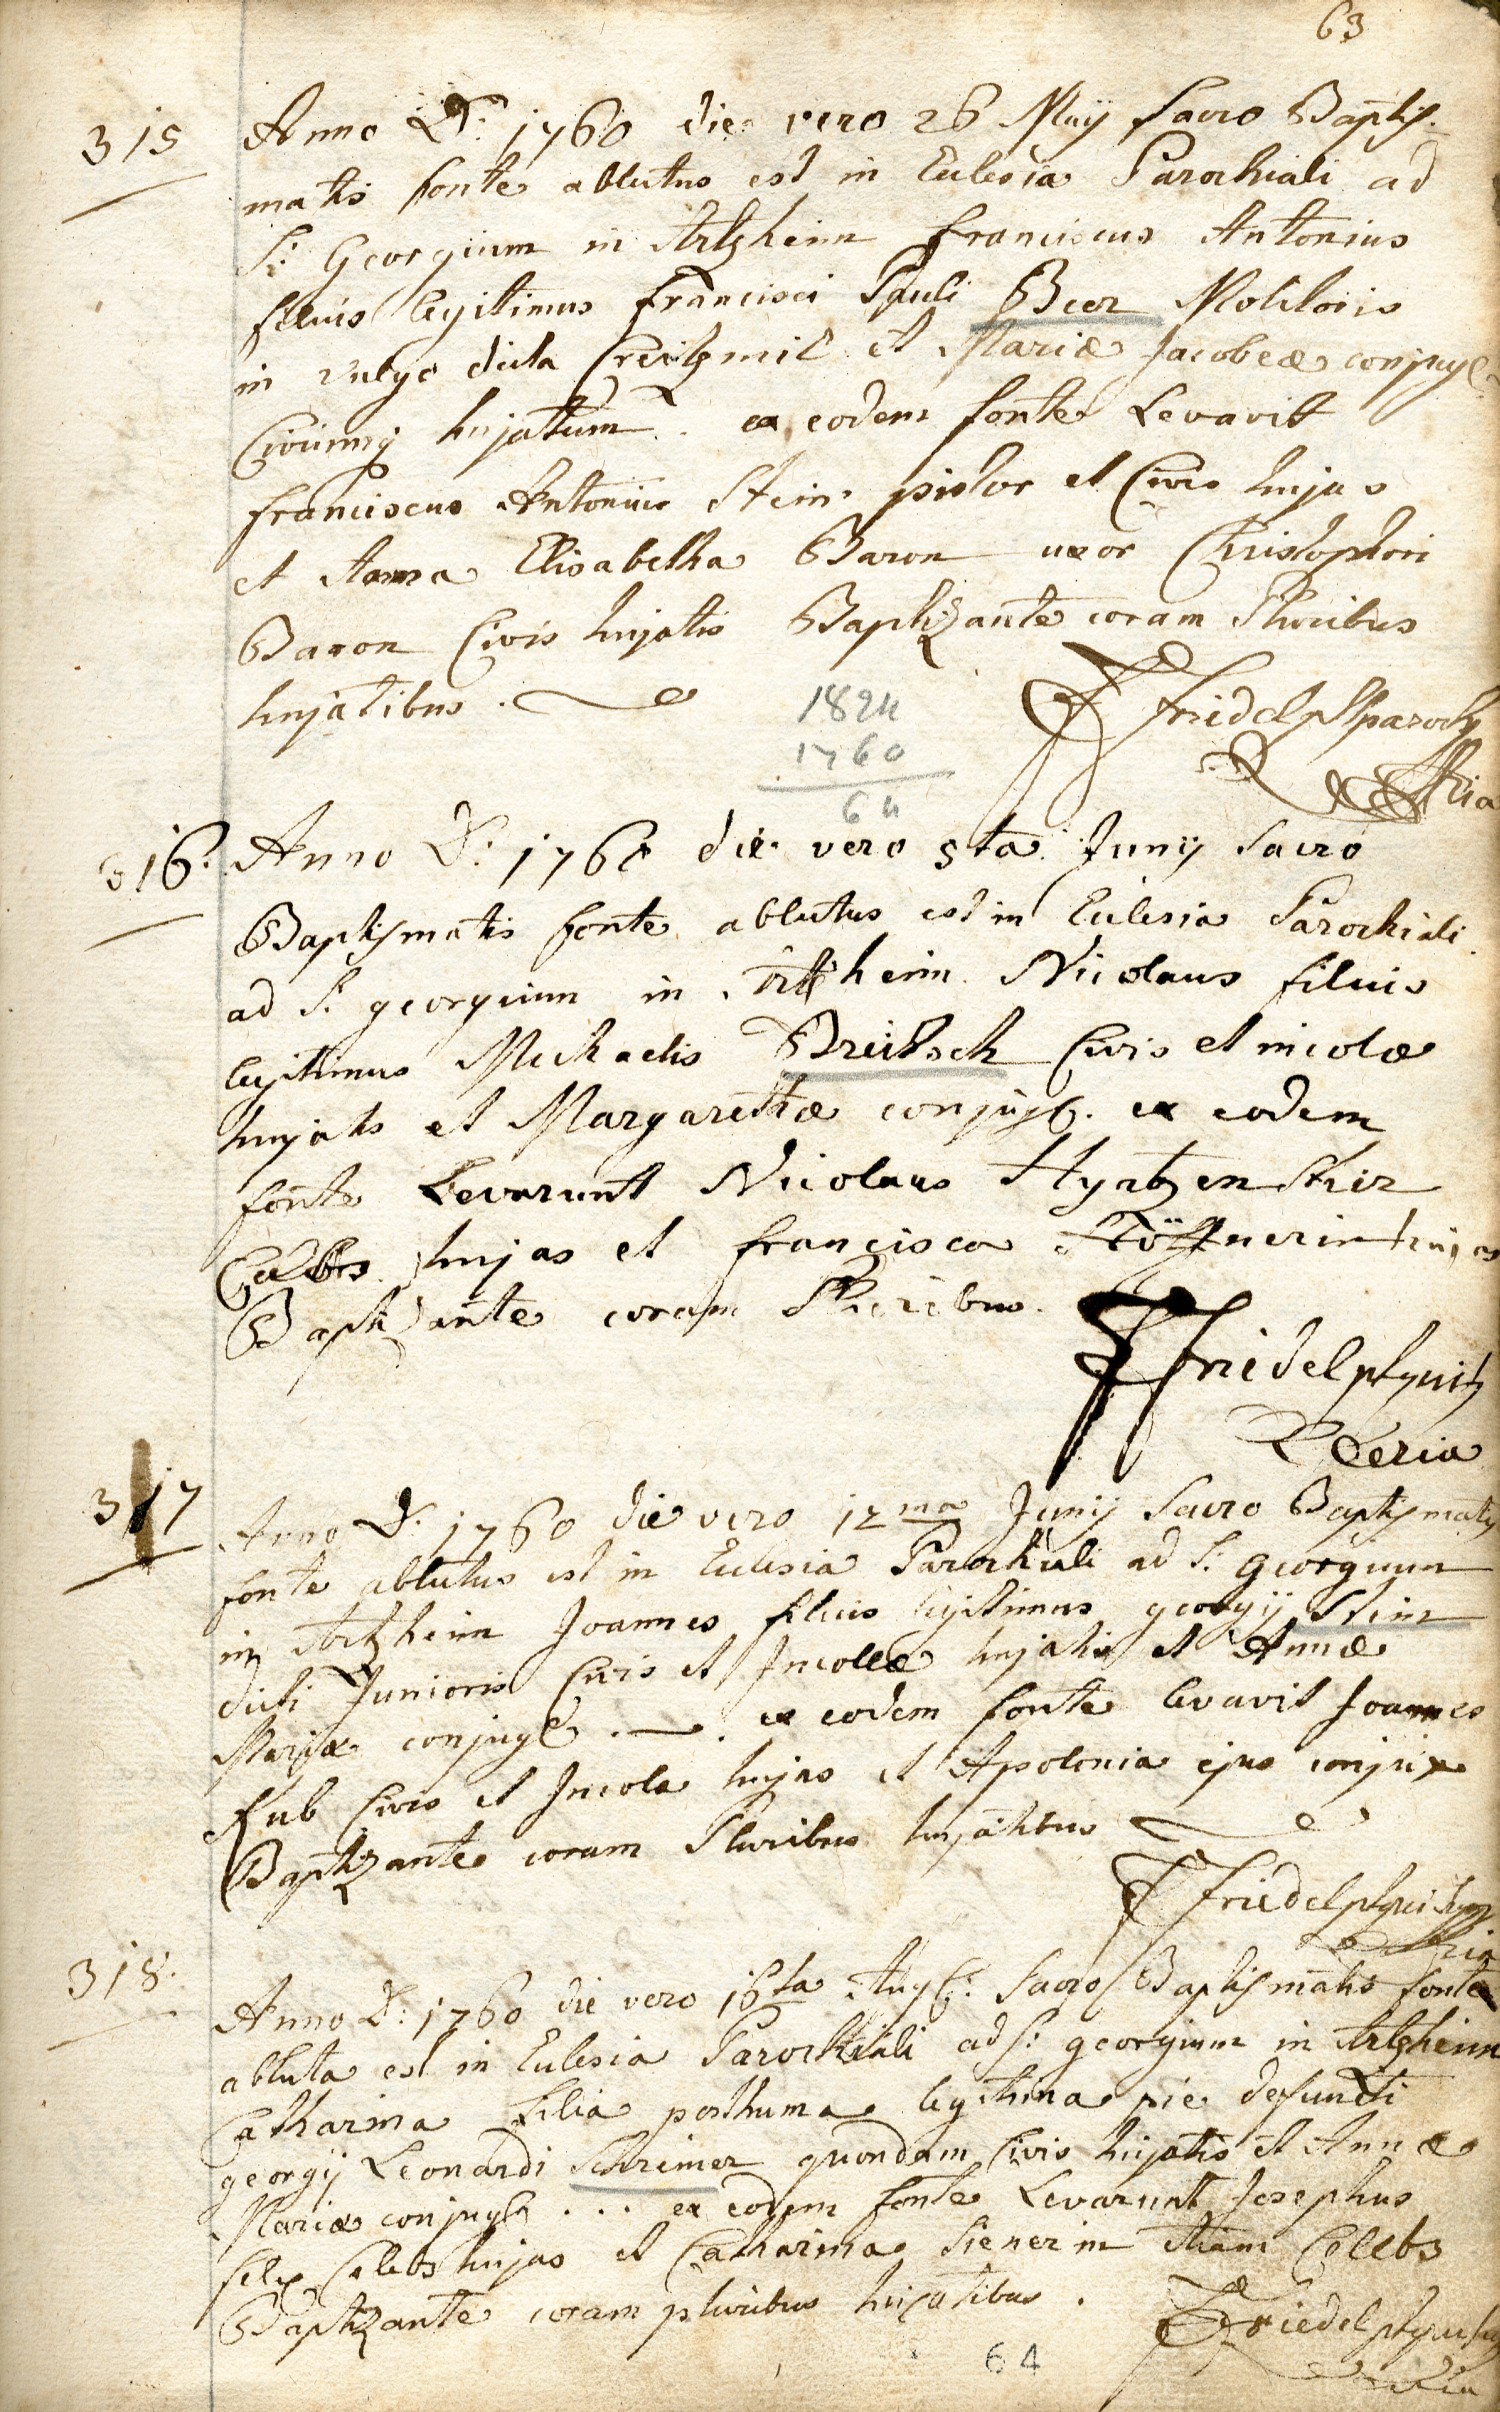 63
315 Anno D: 1760 die vero 26 Maij Sacro Baptis-
matis fonte ablutus est in Eclesia Parochiali ad
S: Georgium in Artzheim Franciscus Antonius
filius legitimus Francisci Pauli Beer Molitoris
in vulgo dicta Creitzmil et Mariæ Jacobeæ conjug
Civium hujatum . ex eodem fonte Levavit
Franciscus Antonius Stein pistor et Civis hujas
et Anna Elisabetha Baron uxor Christophori
Baron Civis hujatis Baptizante coram Pluribus
hujatibus .
1824
1760
64
F Friedel
316. Anno D: 1760 die vero 5ta Junij Sacro
Baptismatis fonte ablutus est in Eclesia Parochiali
ad S: georgium in Artzheim Nicolaus filius
legitimus Michaelis Breitsch Civis et incolæ
hujatis et Margarethæ conjug. ex eodem
fonte Levarunt Nicolaus
hujas et Francisca hujas
Baptizante coram Pluribus.
F Friedel
317 Anno D: 1760 die vero 12ma Junij Sacro Baptismatis
fonte ablutus est in Eclesia Parochiali ad S: georgium
in Artzheim Joannes filius legitimus georgij Stein
dicti Junioris Civis et Incolæ hujatis et Annæ
Mariæ conjug . ex eodem fonte levavit Joannes
Kub Civis et Incola hujas et Apolonia ejus conjux
Baptizante coram Pluribus hujatibus
F Friedel
318. Anno D: 1760 die vero 16ta Aug: Sacro Baptismatis fonte
abluta est in Eclesia Parochiali ad S: georgium in Artzheim
Catharina Filia posthuma legitima pie defuncti
georgij Leonardi Schreiner quondam Civis hujatis et Annæ
Mariæ conjug . . . ex eodem fonte Levarunt Josephus
Celebs hujas et Catharina Sienerin etiam Celebs
Baptizante coram pluribus hujatibus .
Friedel
64